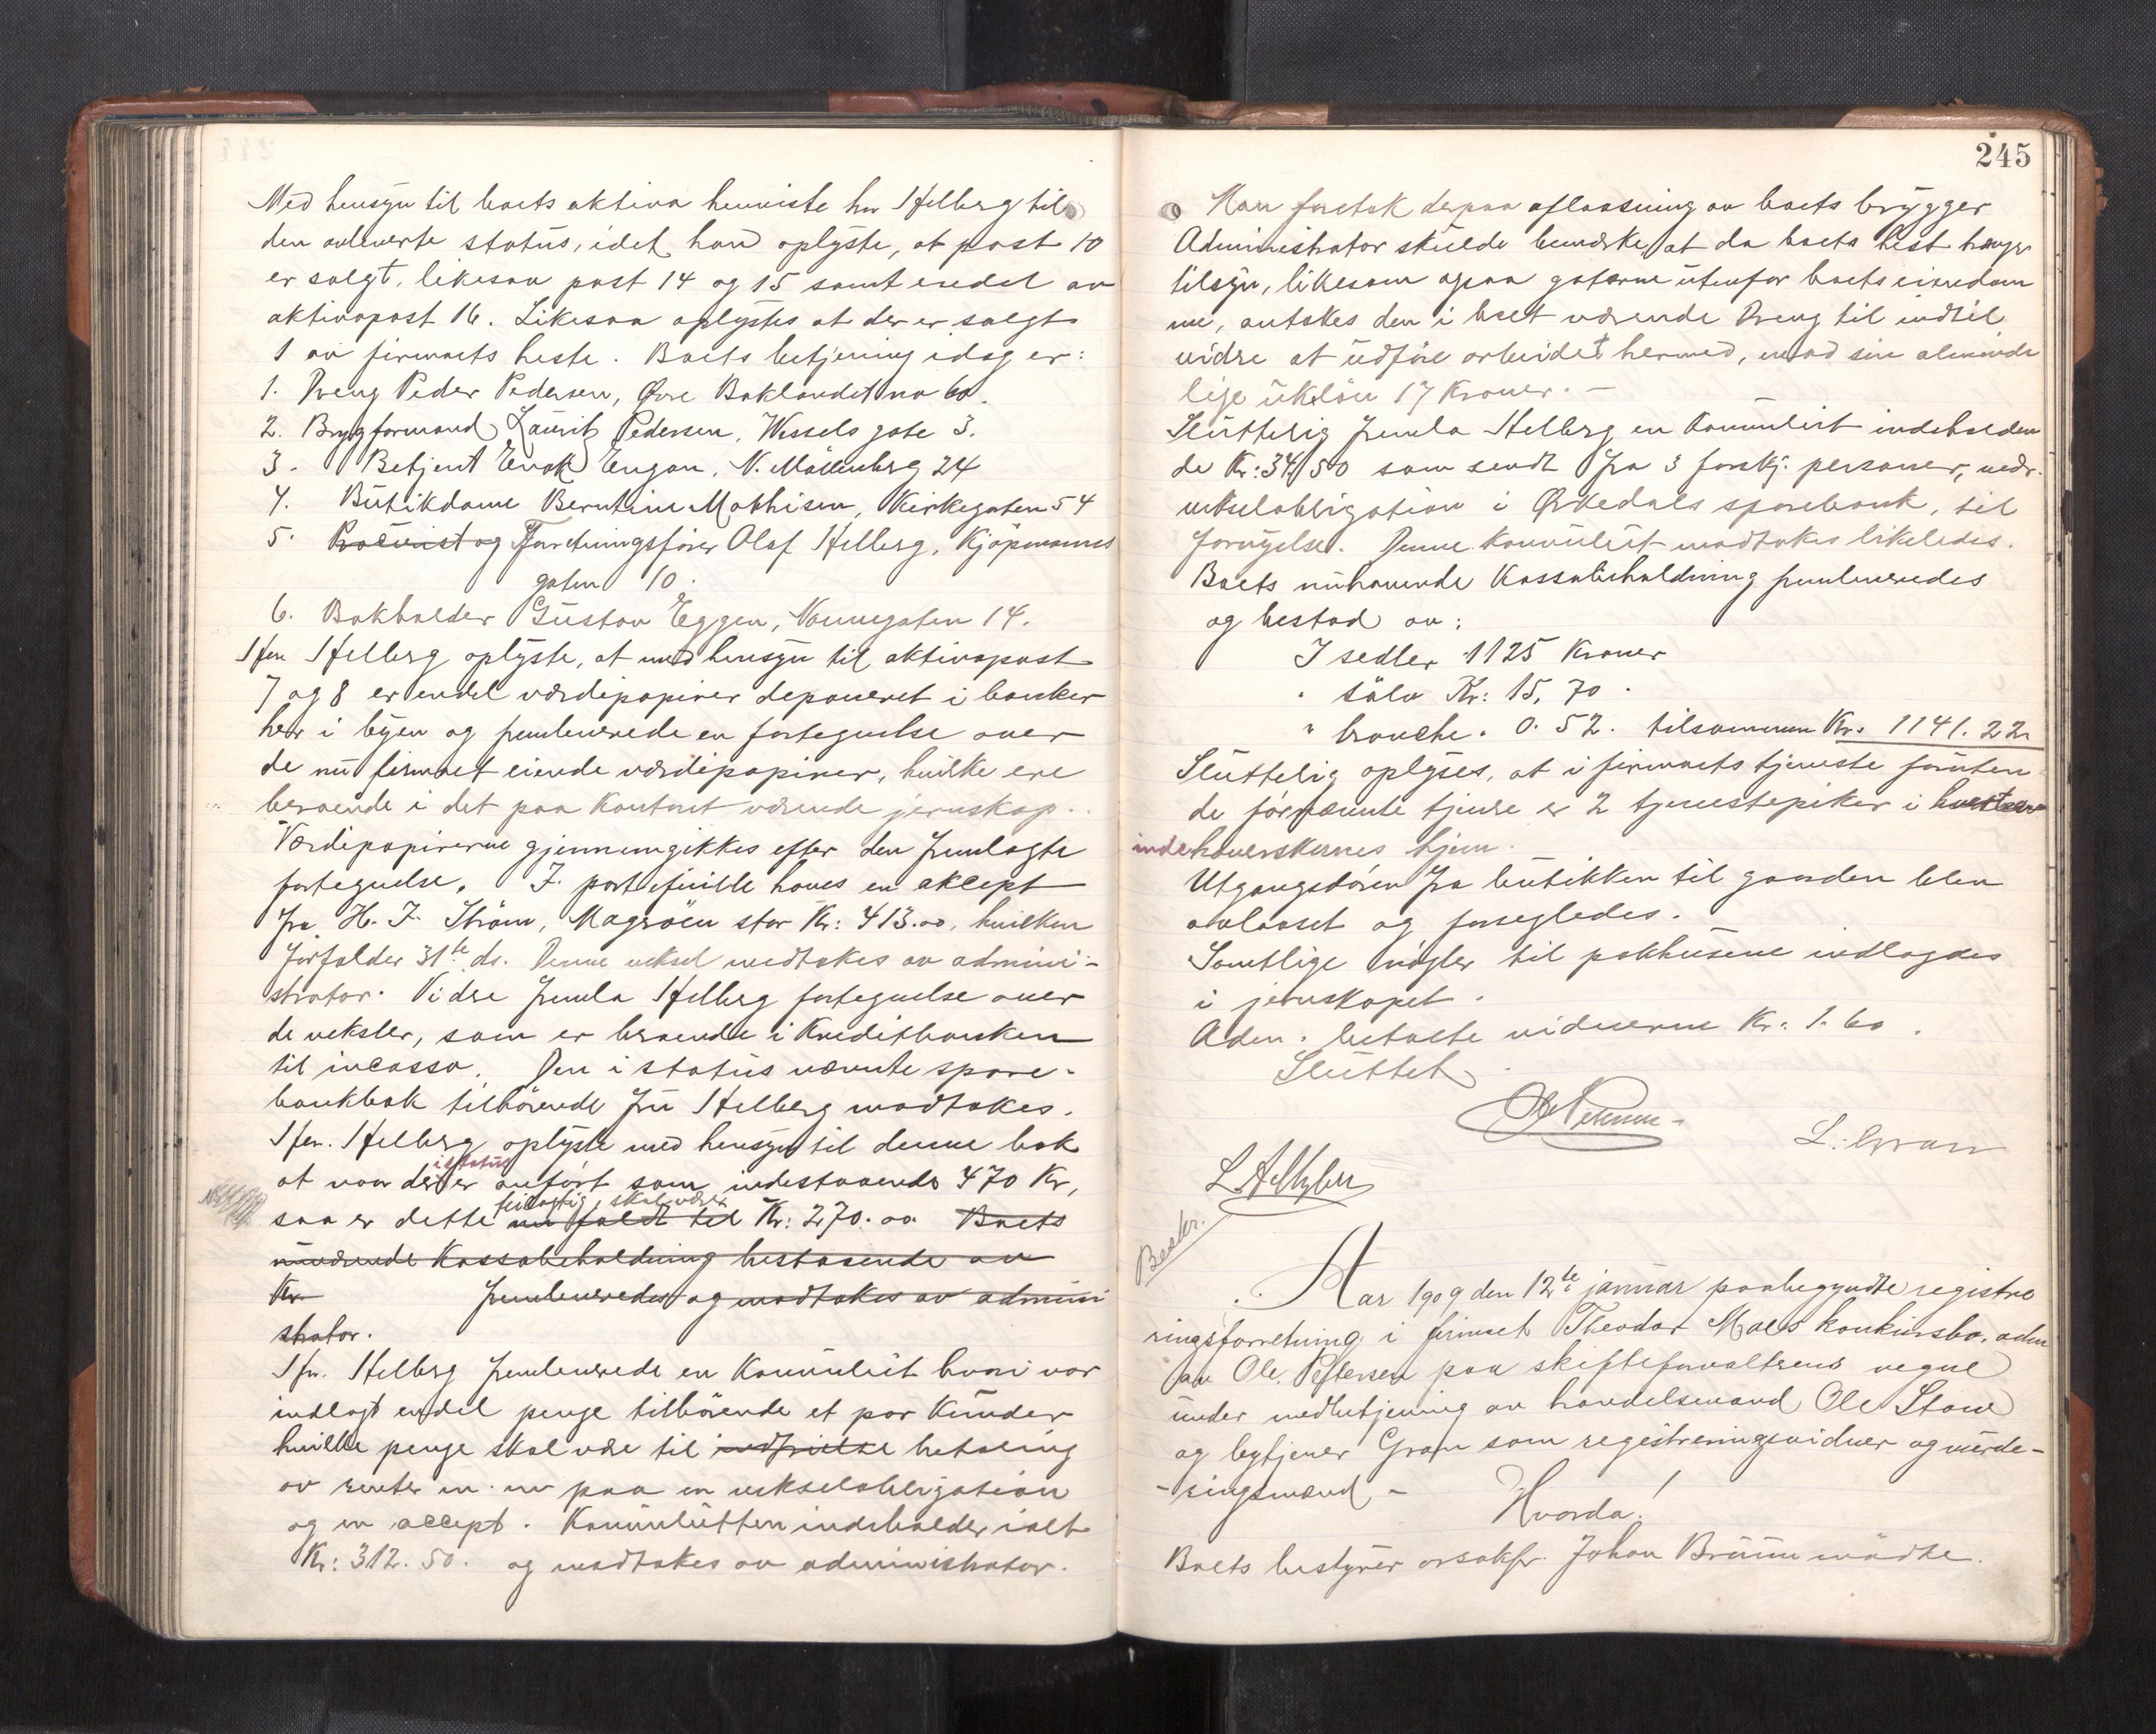 Med hensyn til boets aktiva henviste hr Helberg til
den avleverte status, idet han oplyste, at post 10
er solgt, likesaa post 14 og 15 samt endel av
aktivapost 16. Likesaa oplystes at der er solgt
1 av firmaets heste. Boets betjening idag er:
1. Dreng Peder Pedersen, Øvre Baklandet no 60.
2. Bryggformand Laurits Pedersen, Wessels gate 3.
3. Betjent Enok Engan, N. Möllenberg 24
4. Butikdame Berntine Mathisen, Kirkegaten 54
5. Procurist og Forretningsfører Olaf Helberg, Kjöpmanns
gaten 10.
6. Bokholder Gustav Eggen, Nonnegaten 14.
Hr. Helberg oplyste, at med hensyn til aktivapost
7 og 8 er endel værdipapirer deponeret i banker
her i byen og fremleverede en fortegnelse over
de nu firmaet eiende værdipapirer, hvilke ere
beroende i det paa Kontoret værende jernskap.
Værdipapirerne gjennemgikkes efter den fremlagte
fortegnelse. I portefeuille haves en akcept
fra H. J. Ström, Magerøen stor Kr: 413.00, hvilken
forfalder 31te ds. Denne veksel modtokes av admini-
strator. Videre fremla Helberg fortegnelse over
de veksler, som er beroende i Kreditbanken
til incasso. Den i status nævnte spare-
bankbok tilhörende fru Helberg modtokes.
Hr. Helberg oplyste med hensyn til denne bok
i status
at naar der er anfört som indestaaende 470 Kr,
feilagtig, skal være
saa er dette nu faldt til Kr: 270.00 Boets
nuværende Kassabeholdning bestaaende av
Kr fremleveredes og modtokes av admini
strator.
Hr. Helberg fremleverede en Konvolut hvori var
indlagt endel penge tilhörende et par Kunder
hvilke penge skal være til indfrielse betaling
av renter m. m paa en vekselobligation
og en accept. Konvolutten indeholder ialt
Kr: 312.50. og modtokes av administrator.
245
Man foretok derpaa aflaasning av boets brygger
Administrator skulde bemærke, at da boets hest trænger
tilsyn, likesom ogsaa gaterne utenfor boets eiendom
me, antokes den i boet værende Dreng til indtil
videre at udføre arbeidet hermed, mod sin alminde
lige ukelön 17 Kroner. -
Sluttelig fremla Helberg en Konvolut indeholden
de Kr: 34,50 som sendt fra 3 forskj. personer, vedr.
vekselobligation i Ørkedals sparebank, til
fornyelse. Denne Konvolut modtokes likeledes.
Boets nuhavende Kassabeholdning fremleveredes
og bestod av:
I sedler 1125 Kroner
" sölv Kr: 15,70.
" bronche " 0.52. tilsammen Kr. 1141.22
Sluttelig oplyses, at i firmaets tjeneste foruten
de fornævnte tjenere er 2 tjenestepiker i
indehaverskernes hjem.
Utgangsdören fra butikken til gaarden blev
avlaaset og forsegledes.
Samtlige nøgler til pakhusene indlagdes
i jernskapet.
Adm. betalte vidnerne Kr: 1.60.
Sluttet
L. Gran
Beskr.
Aar 1909 den 12te januar paabegyndte registre
ringsforretning i firmaet Theodor Moes konkursbo. adm
av Ole Pettersen paa skifteforvalterens vegne
under medbetjening av handelsmand Ole Stave
og bytjener Gran som registreringsvidner og vurde-
-ringsmænd, -
Hvorda!
Boets bestyrer orsakfr. Johan Bruun mödte.